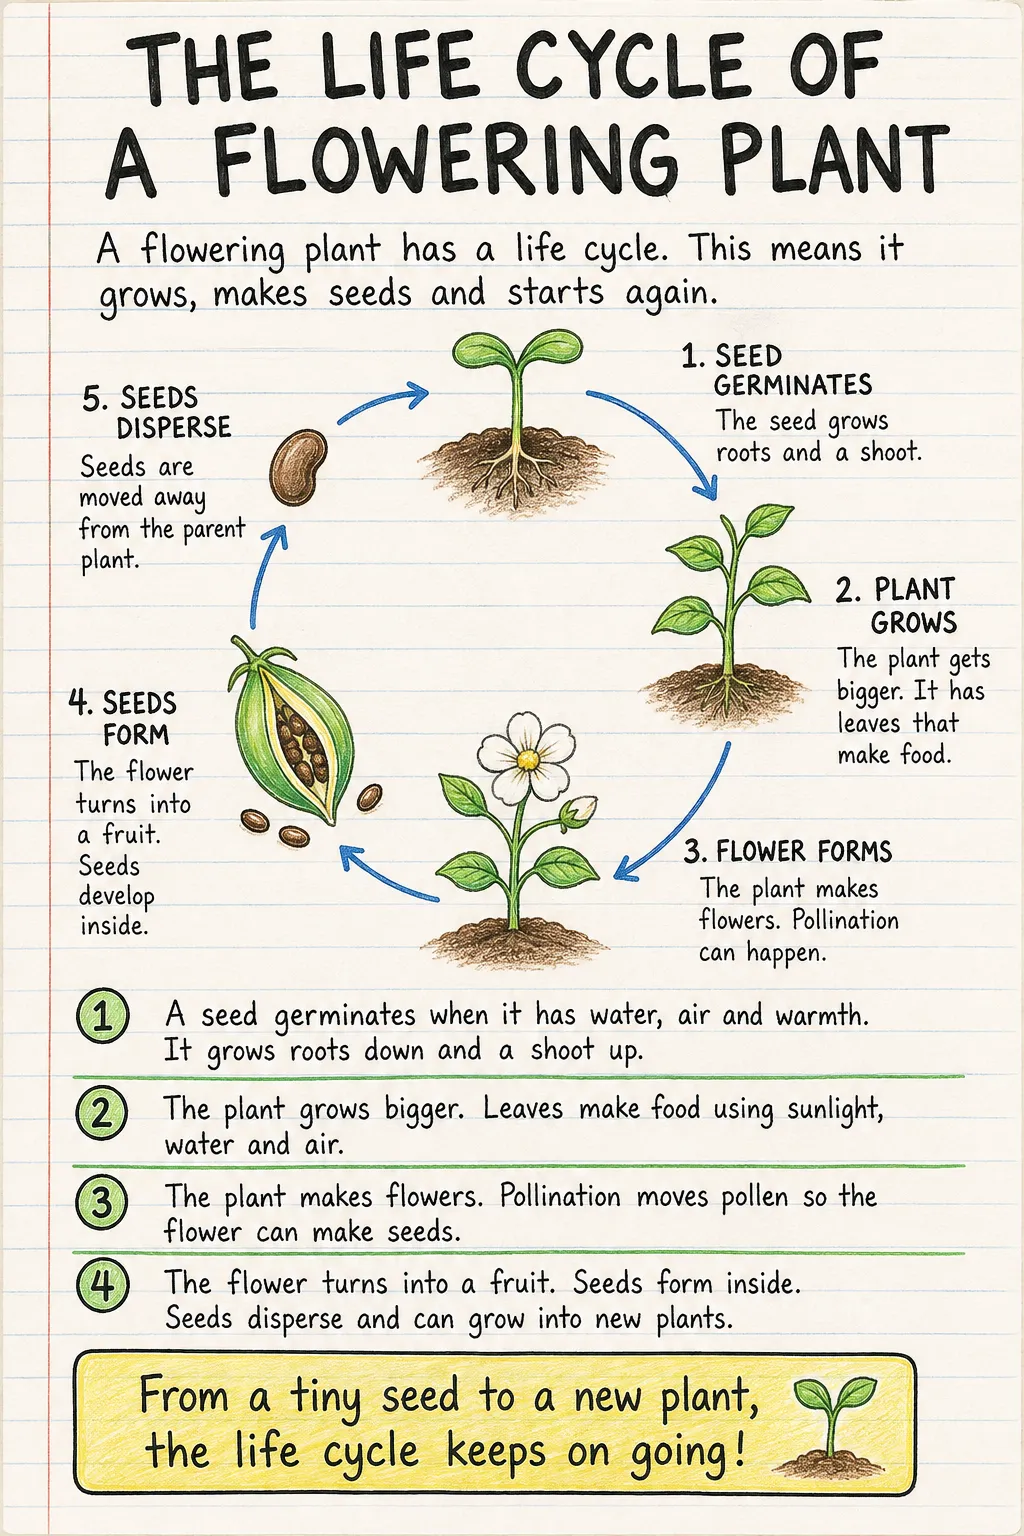 THE LIFE CYCLE OF
A FLOWERING PLANT
A flowering plant has a life cycle. This means it
grows, makes seeds and starts again.
1. SEED
GERMINATES
The seed grows
roots and a shoot.
2. PLANT
GROWS
The plant gets
bigger. It has
leaves that
make food.
3. FLOWER FORMS
The plant makes
flowers. Pollination
can happen.
4. SEEDS
FORM
The flower
turns into
a fruit.
Seeds
develop
inside.
5. SEEDS
DISPERSE
Seeds are
moved away
from the parent
plant.
1 A seed germinates when it has water, air and warmth.
It grows roots down and a shoot up.
2 The plant grows bigger. Leaves make food using sunlight,
water and air.
3 The plant makes flowers. Pollination moves pollen so the
flower can make seeds.
4 The flower turns into a fruit. Seeds form inside.
Seeds disperse and can grow into new plants.
From a tiny seed to a new plant,
the life cycle keeps on going!